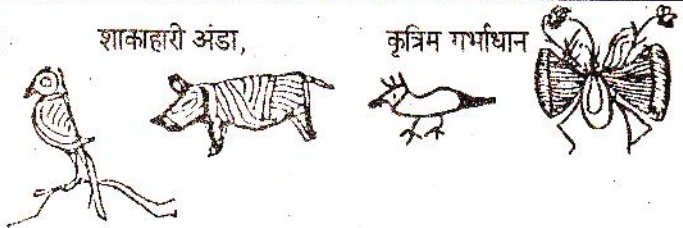 शाकाहारी अंडा, कृत्रिम गर्भाधान